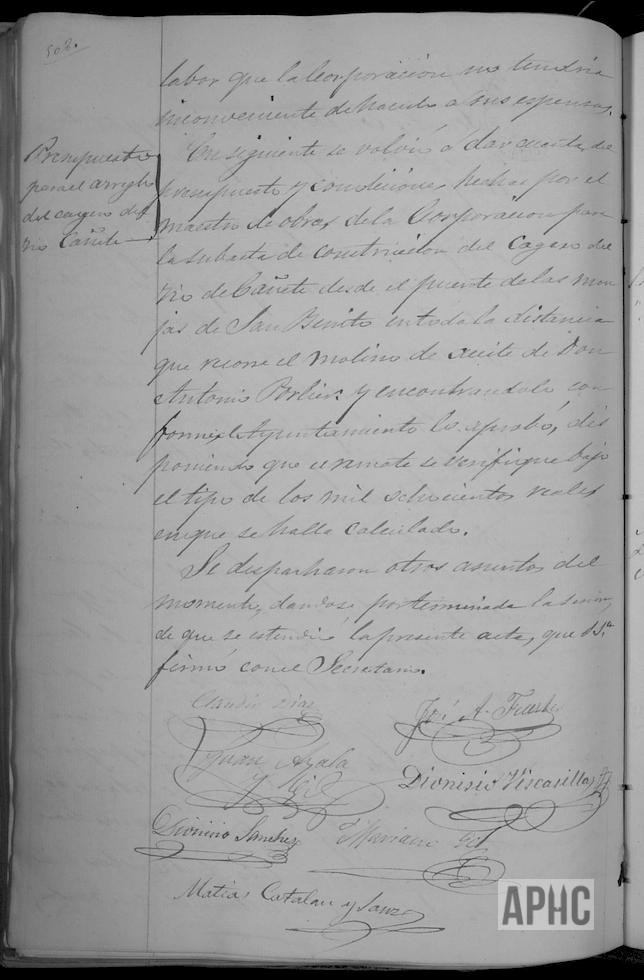 labor que la Corporacion no tendria
inconveniente de hacerlo a sus espensas.
Presupuesto
para el arreglo
del cagero del
rio Cañete
En siguiente se volvió á dar cuenta del
presupuesto y condiciones hechas por el
maestro de obras de la Corporacion para
la subasta de construccion del Cagero del
rio de Cañete desde el puente de las mon
jas de San Benito en toda la distancia
que recorre el molino de aceite de Don
Antonio y encontrandolo con
forme el Ayuntamiento lo aprobó, dis
poniendo que el remate se verifique bajo
el tipo de los mil ochocientos reales
en que se halla calculado.
Se despacharon otros asuntos del
momento, dandose por terminada la sesion,
de que se estendió la presente acta, que S.S.ª
firmó con el Secretario.
Claudio Diaz
José A.
Juan Ayala
y Gil
Dionisio Viscasillas
Dionisio Sanchez
Mariano Gil
Matias Catalan y Sanz
APHC